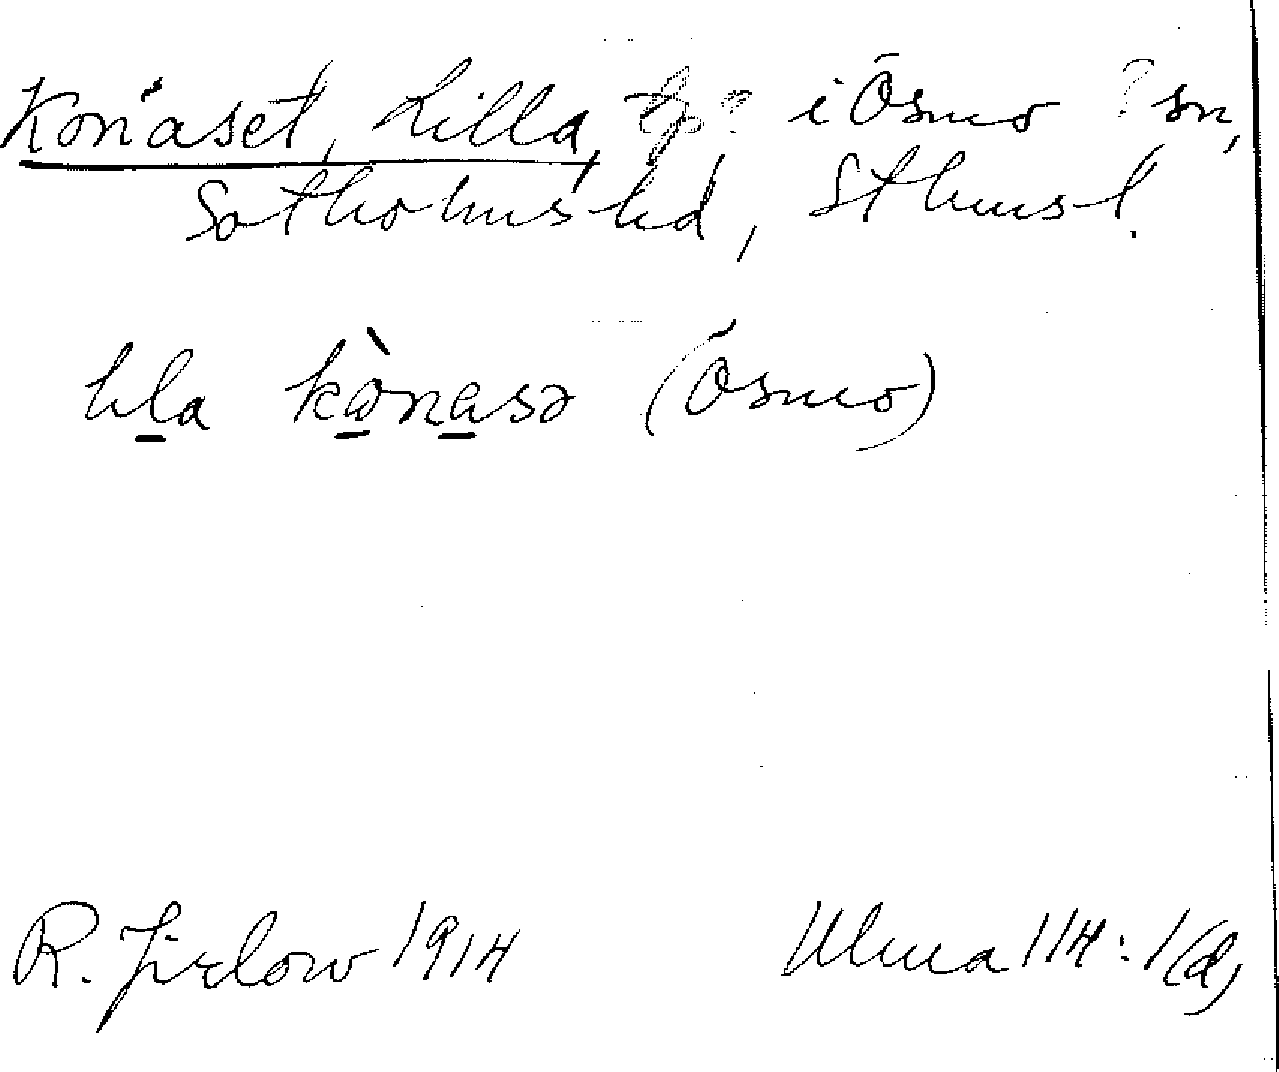 Konäset, Lilla, i Ösmo ? sn,
Sotholms hd, Sthms l.
lila kònasə (Ösmo)
R. Jirlow 1914 Ulma 114:1(d)